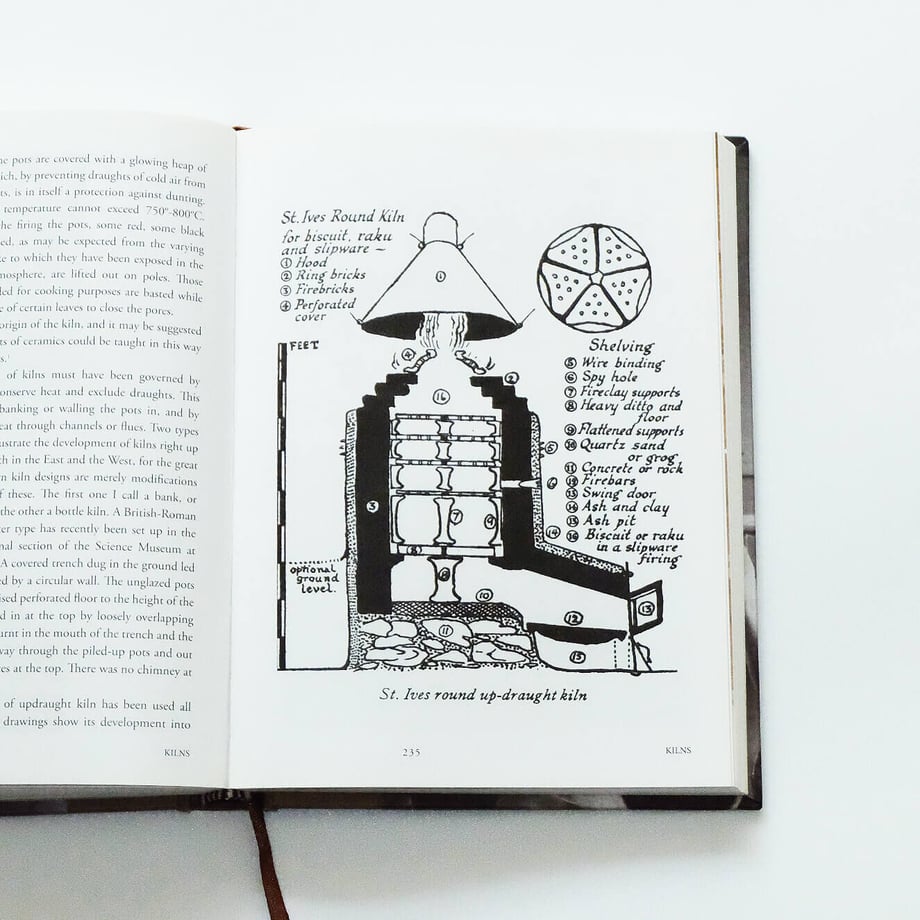 ne pots are covered with a glowing heap of
ich, by preventing draughts of cold air from
ts, is in itself a protection against dunting.
temperature cannot exceed 750°-800°C.
he firing the pots, some red, some black
ed, as may be expected from the varying
e to which they have been exposed in the
mosphere, are lifted out on poles. Those
led for cooking purposes are basted while
e of certain leaves to close the pores.
origin of the kiln, and it may be suggested
ts of ceramics could be taught in this way
s.¹
of kilns must have been governed by
onserve heat and exclude draughts. This
banking or walling the pots in, and by
eat through channels or flues. Two types
ustrate the development of kilns right up
th in the East and the West, for the great
rn kiln designs are merely modifications
f these. The first one I call a bank, or
the other a bottle kiln. A British-Roman
ter type has recently been set up in the
nal section of the Science Museum at
A covered trench dug in the ground led
ed by a circular wall. The unglazed pots
ised perforated floor to the height of the
d in at the top by loosely overlapping
urnt in the mouth of the trench and the
way through the piled-up pots and out
es at the top. There was no chimney at
of updraught kiln has been used all
drawings show its development into
KILNS
St. Ives Round Kiln
for biscuit, raku
and slipware ~
① Hood
② Ring bricks
③ Firebricks
④ Perforated
cover
FEET
optional
ground
level.
Shelving
⑤ Wire binding
⑥ Spy hole
⑦ Fireclay supports
⑧ Heavy ditto and
floor
⑨ Flattened supports
⑩ Quartz sand
or grog
⑪ Concrete or rock
⑫ Firebars
⑬ Swing door
⑭ Ash and clay
⑮ Ash pit
⑯ Biscuit or raku
in a slipware
firing
1
4
2
16
5
6
3
7
9
14
8
10
11
12
13
15
St. Ives round up-draught kiln
235
KILNS